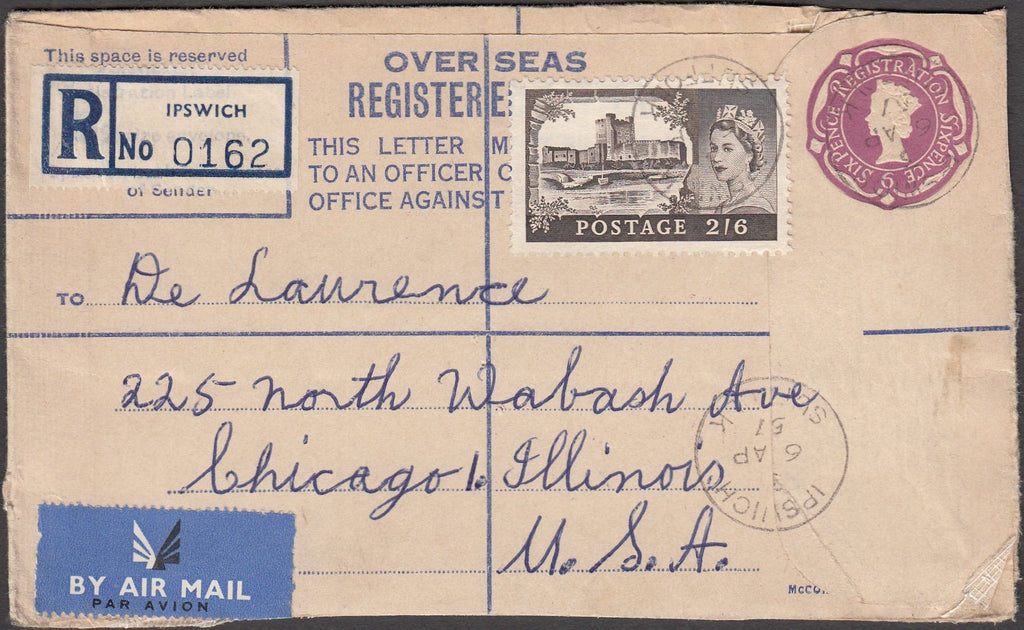 This space is reserved
of Sender
R
IPSWICH
No 0162
OVER SEAS
REGISTERE
THIS LETTER M
TO AN OFFICER C
OFFICE AGAINST
POSTAGE 2/6
SIX PENCE REGISTRATION SIXPENCE
6
TO De Laurence
225 North Wabash Ave
Chicago 1. Illinois
U. S. A.
IPSWICH
6 AP
57
BY AIR MAIL
PAR AVION
McCO